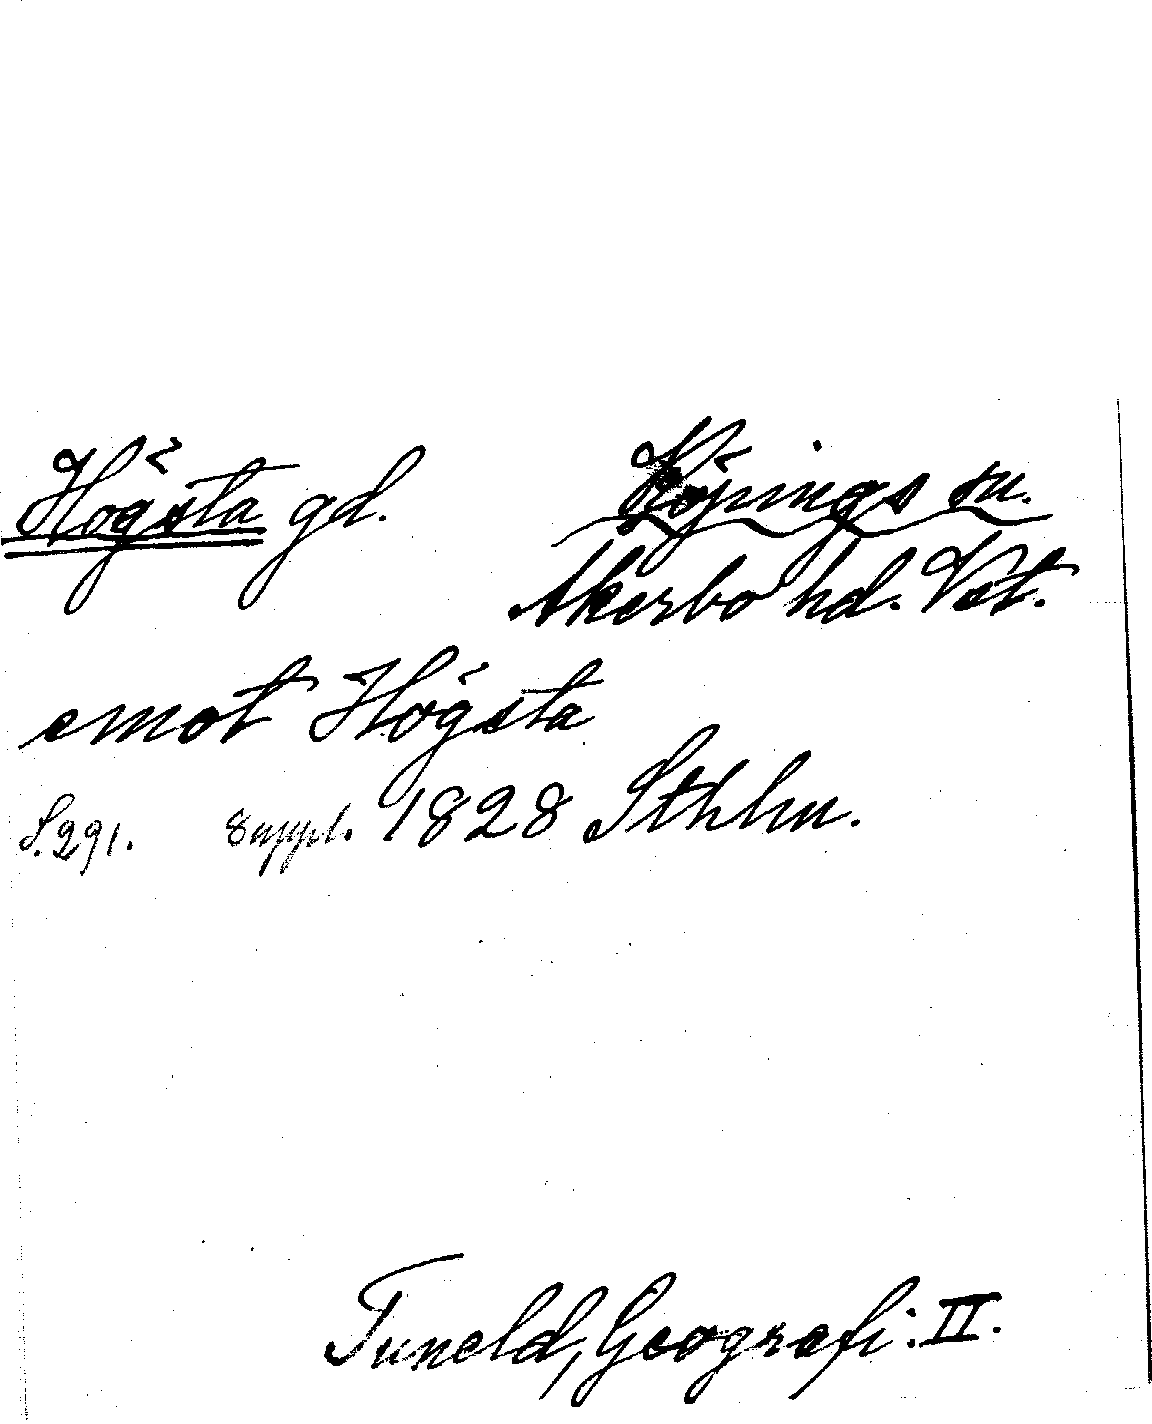 Högsta gd. Köpings sn.
Åkerbo hd. Vstl.
emot Högsta
S. 291. Suppl. 1828 Sthlm.
Tuneld, Geografi. II.